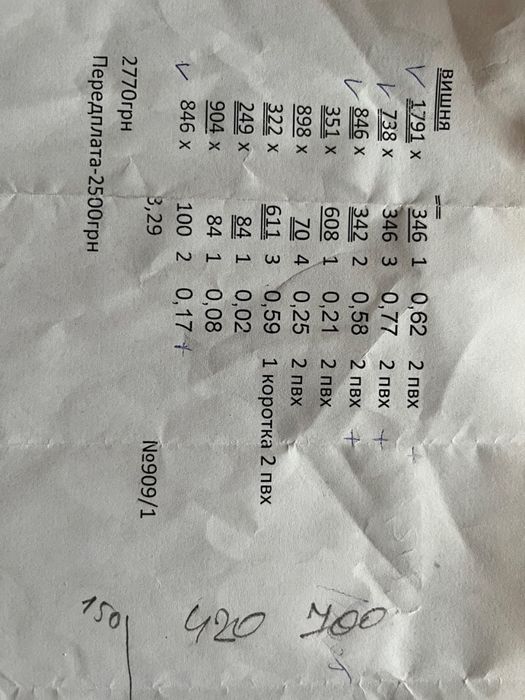 вишня
==
1791 х 346 1 0,62 2 пвх +
738 х 346 3 0,77 2 пвх +
846 х 342 2 0,58 2 пвх +
351 х 608 1 0,21 2 пвх
898 х 70 4 0,25 2 пвх
322 х 611 3 0,59 1 коротка 2 пвх
249 х 84 1 0,02
904 х 84 1 0,08
846 х 100 2 0,17 +
3,29 №909/1
2770грн
Передплата-2500грн
700
420
150